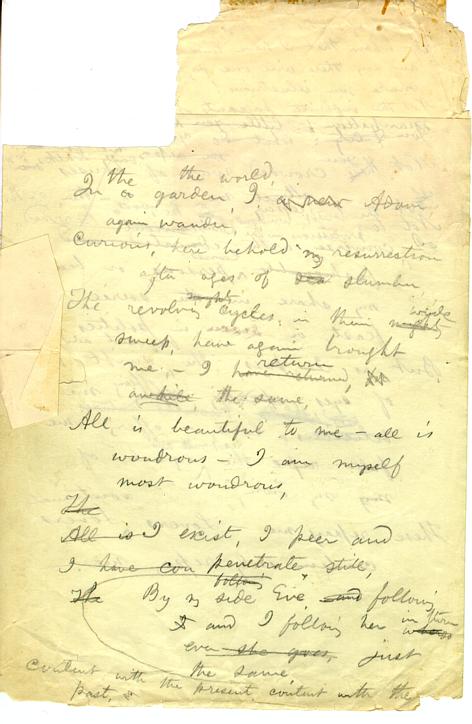 the the world,
In a garden, I, a new Adam
again wander,
Curious, here behold my resurrection
after ages of sea slumber
mighty
The revolving cycles, in their mighty wide
sweep, have again brought
return
me – I have returned,
awhile the same,
All is beautiful to me – all is
wondrous – I am myself
most wondrous,
The
All is I exist, I peer and
I have penetrate still,
following
The By my side Eve and following
I and I following her in turn
even she goes, just
the same,
content with the
past, & the present, content with the